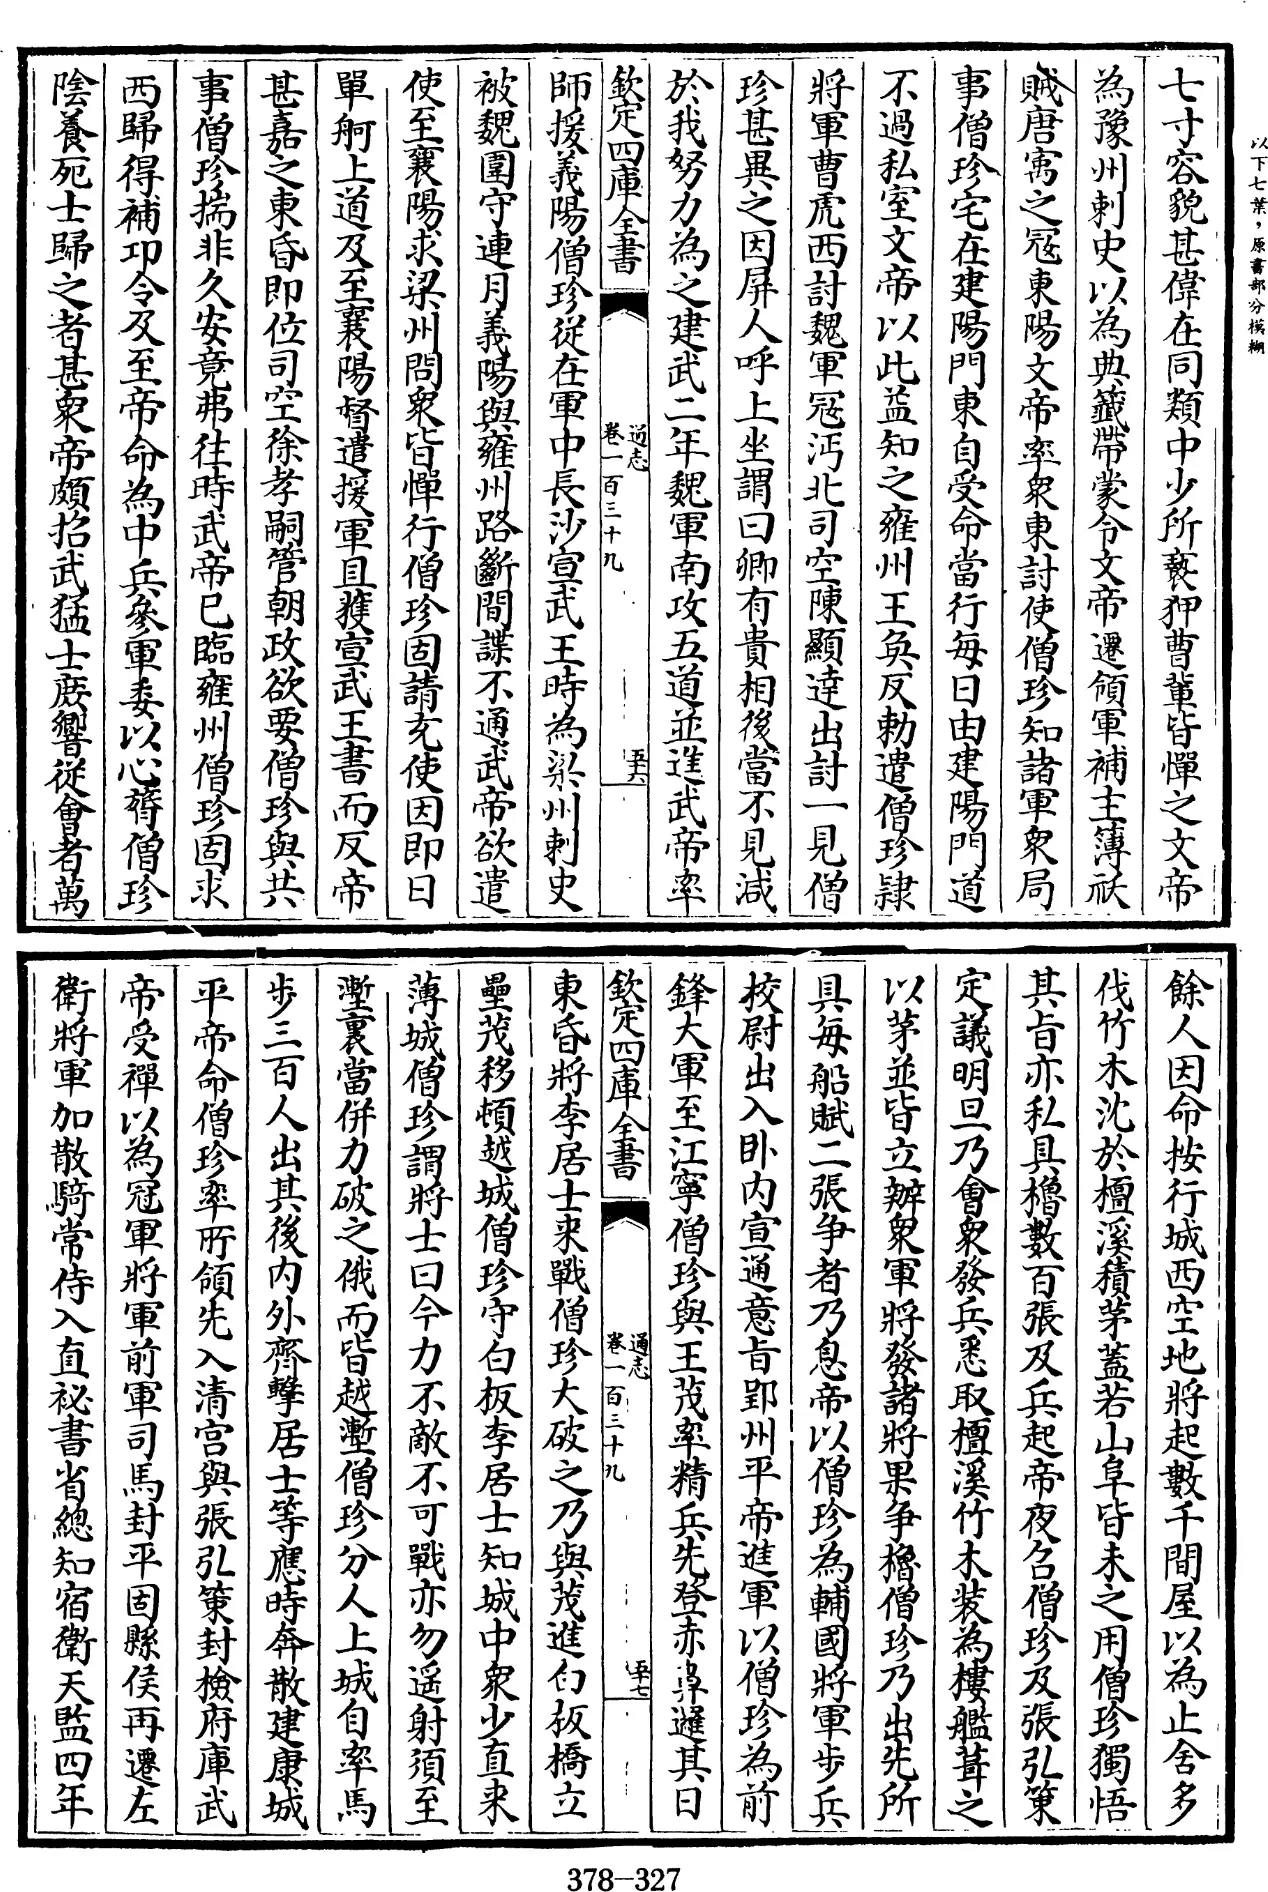 以下七葉，原書部分模糊
七寸容貌甚偉在同類中少所褻狎曹輩皆憚之文帝
為豫州刺史以為典籤帶蒙令文帝遷領軍補主簿祅
賊唐㝢之冦東陽文帝率衆東討使僧珍知諸軍衆局
事僧珍宅在建陽門東自受命當行每日由建陽門道
不過私室文帝以此益知之雍州王奐反勅遣僧珍隷
將軍曹虎西討魏軍冦沔北司空陳顯達出討一見僧
珍甚異之因屏人呼上坐謂曰卿有貴相後當不見減
於我努力為之建武二年魏軍南攻五道並進武帝率
欽定四庫全書
通志
卷一百三十九
五六
師援義陽僧珍從在軍中長沙宣武王時為梁州刺史
被魏圍守連月義陽與雍州路斷間諜不通武帝欲遣
使至襄陽求梁州問衆皆憚行僧珍固請充使因即日
單舸上道及至襄陽督遣援軍且獲宣武王書而反帝
甚嘉之東昏即位司空徐孝嗣管朝政欲要僧珍與共
事僧珍揣非久安竟弗往時武帝已臨雍州僧珍固求
西歸得補卭令及至帝命為中兵參軍委以心膂僧珍
陰養死士歸之者甚衆帝頗招武猛士庶響從會者萬
餘人因命按行城西空地將起數千間屋以為止舍多
伐竹木沈於檀溪積茅蓋若山阜皆未之用僧珍獨悟
其旨亦私具櫓數百張及兵起帝夜召僧珍及張弘策
定議明旦乃會衆發兵悉取檀溪竹木装為樓艦葺之
以茅並皆立辦衆軍將發諸將果争櫓僧珍乃出先所
具每船賦二張争者乃息帝以僧珍為輔國將軍步兵
校尉出入卧内宣通意旨郢州平帝進軍以僧珍為前
鋒大軍至江寧僧珍與王茂率精兵先登赤鼻邏其日
欽定四庫全書
通志
卷一百三十九
五七
東昏將李居士来戰僧珍大破之乃與茂進白板橋立
壘茂移頓越城僧珍守白板李居士知城中衆少直来
薄城僧珍謂將士曰今力不敵不可戰亦勿遥射須至
壍裏當併力破之俄而皆越壍僧珍分人上城自率馬
步三百人出其後内外齊擊居士等應時奔散建康城
平帝命僧珍率所領先入清宫與張弘策封檢府庫武
帝受禪以為冠軍將軍前軍司馬封平固縣侯再遷左
衛將軍加散騎常侍入直祕書省總知宿衛天監四年
378-327